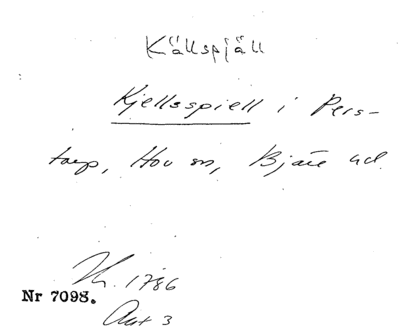 Källspjäll
Kjellsspiell i Pers-
torp, Hov sn, Bjäre hd.
1786
Nr 7098.
Akt 3